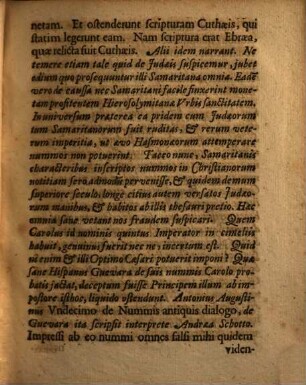 netam. Et ostenderunt scripturam Cuthæis, qui
statim legerunt eam. Nam scriptura erat Ebræa,
quæ relicta fuit Cuthæis. Alii idem narrant. Ne
temere etiam tale quid de Judæis suspicemur, jubet
odium quo prosequuntur illi Samaritana omnia. Eadē
vero de caussa nec Samaritani facile finxerint mone-
tam profitentem Hierosolymitana Urbis sanctitatem.
In universum præterea ea pridem cum Judæorum
tum Samaritanorum fuit ruditas, & rerum vete-
rum imperitia, ut ævo Hasmonæorum attemperare
nummos non potuerint. Taceo nunc, Samaritanis
characteribus inscriptos nummos in Christianorum
notitiam sero admodū pervenisse, & quidem demum
superiore seculo, longe citius autem versatos Judæo-
rum manibus, & habitos albilis thesauri pretio. Hæc
omnia sane vetant nos fraudem suspicari. Quem
Carolus id nominis quintus Imperator in cimeliis
habuit, genuinus fuerit nec ne, incertum est. Quid
ni enim & illi Optimo Cæsari potuerit imponi? Quæ
sane Hispanus Guevara de suis nummis Carolo pro-
batis jactat, deceptum fuisse Principem illum ab im-
postore istboc, liquido ostendunt. Antonius Augusti-
nus Undecimo de Nummis antiquis dialogo, de
Guevara ita scripsit interprete Andrea Schotto.
Impressi ab eo nummi omnes falsi mihi quidem
viden-